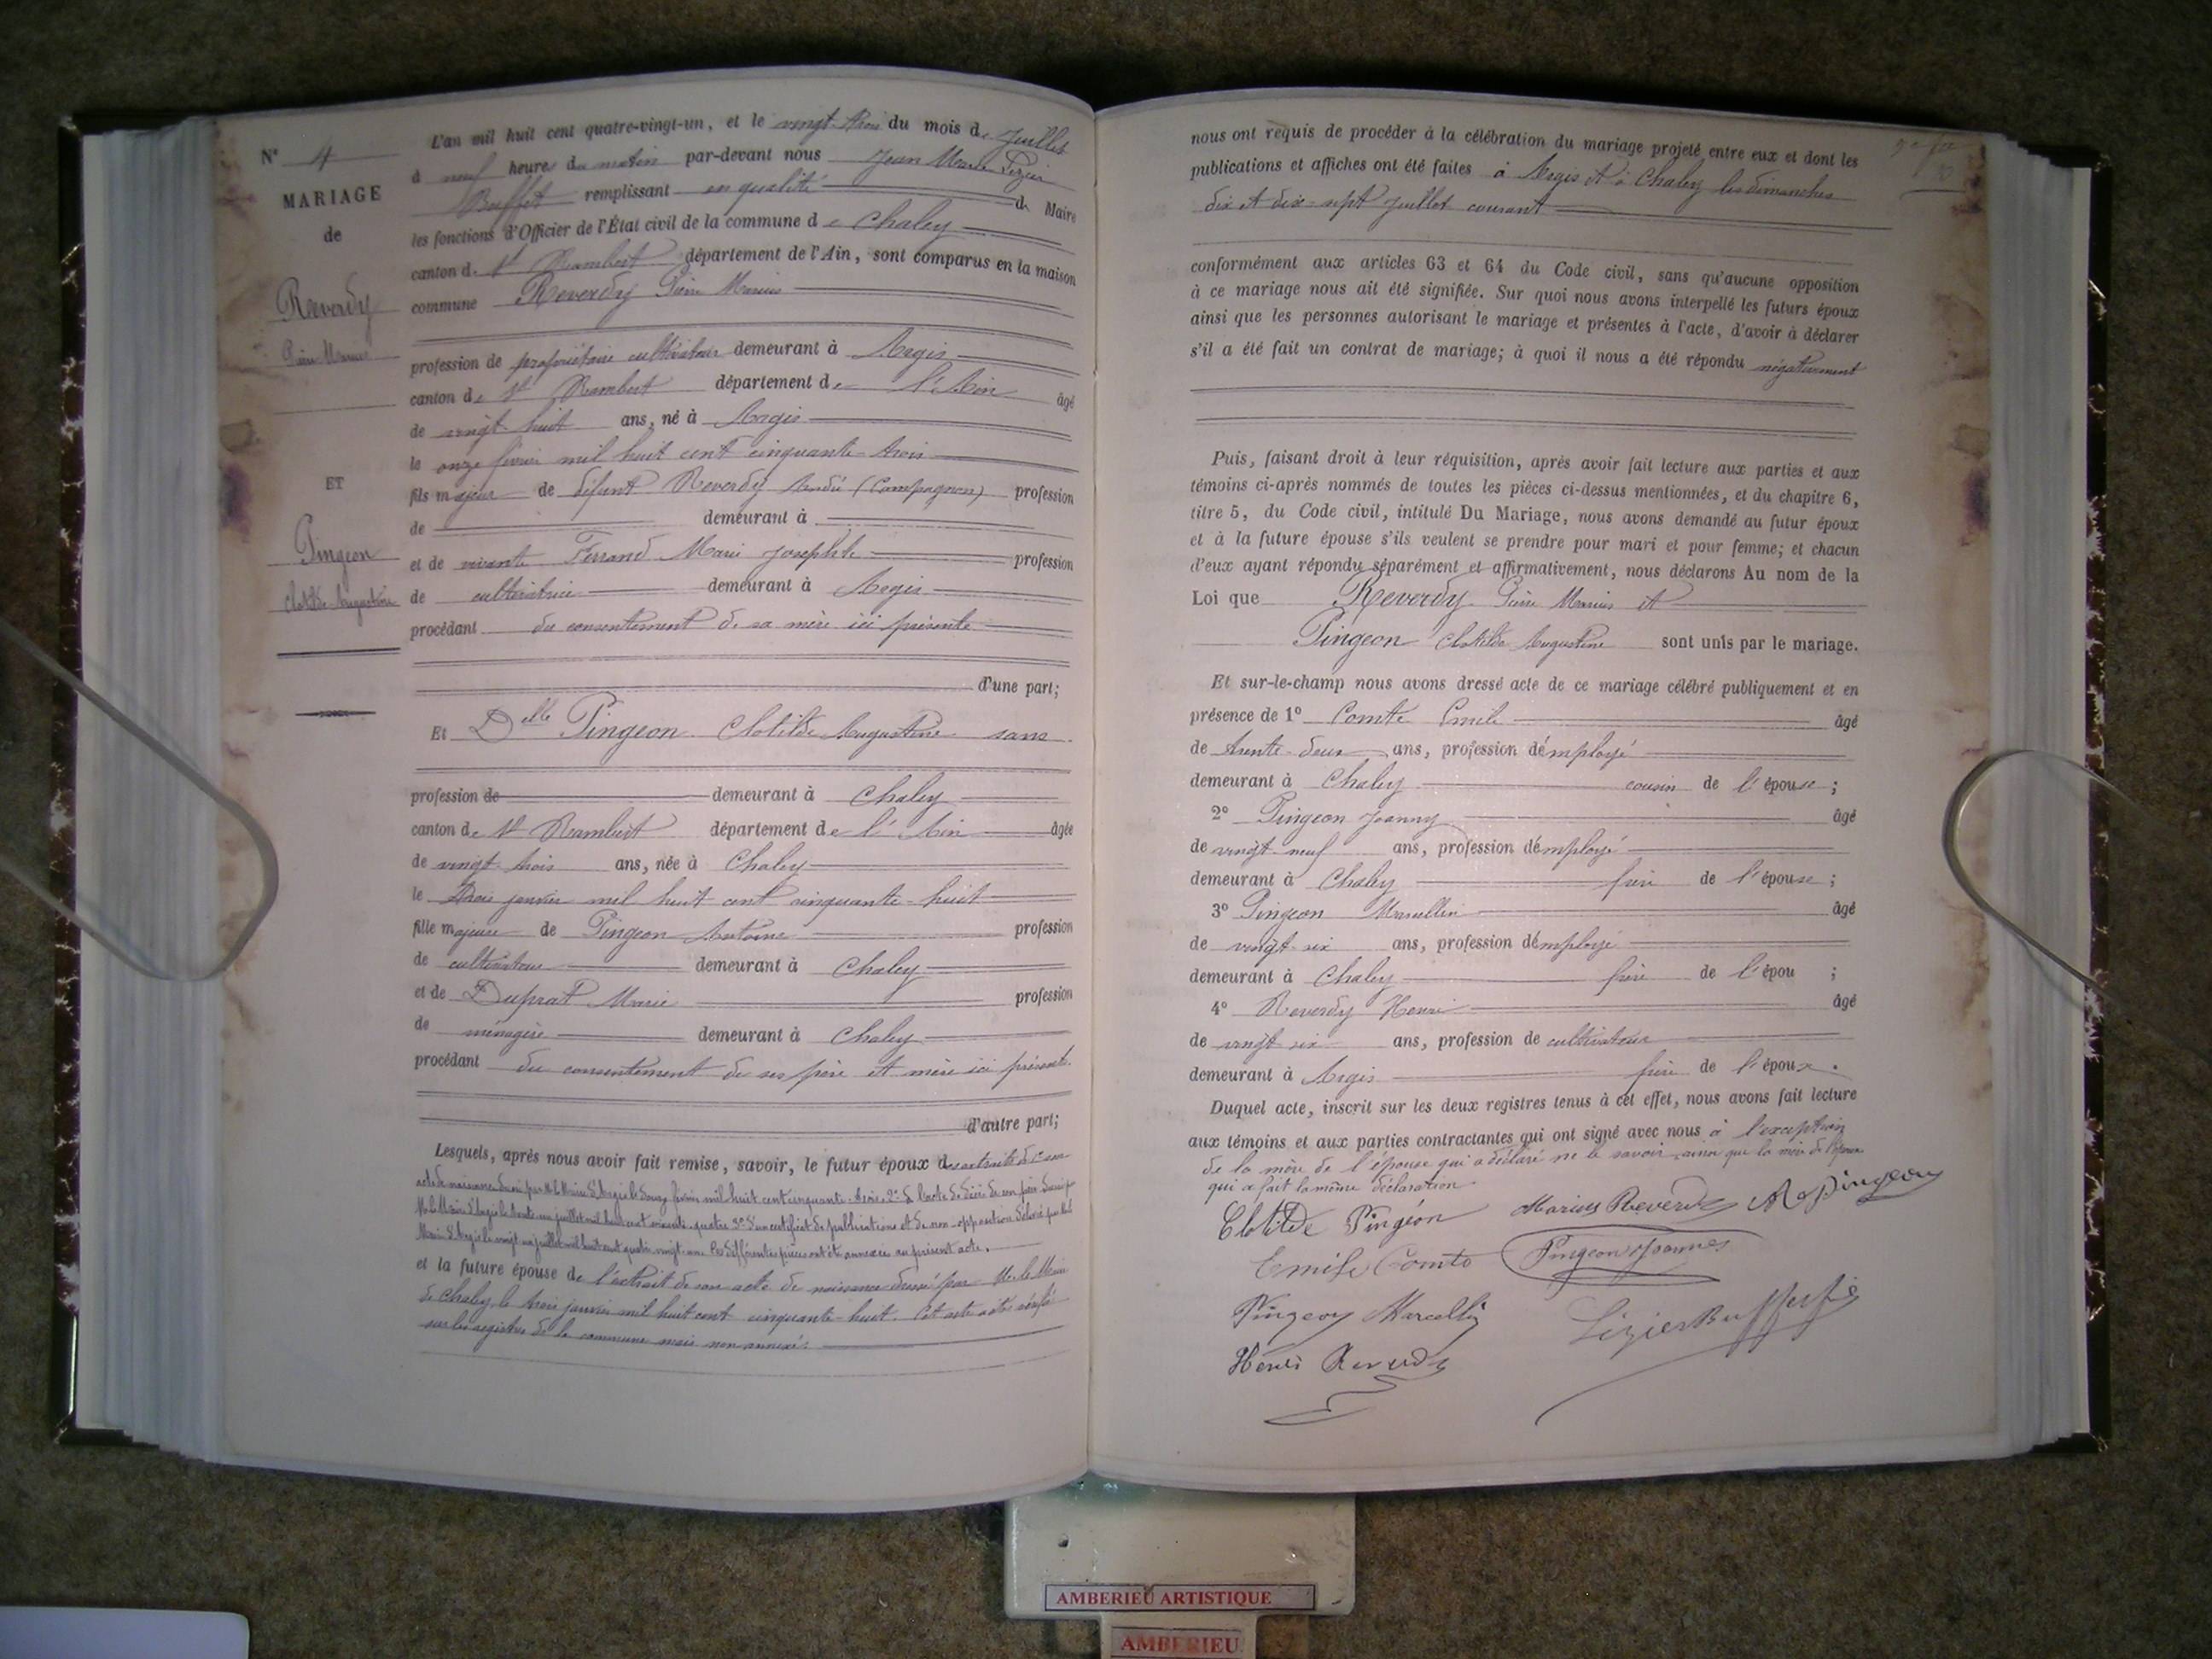 N° 4
MARIAGE
de
Reverdy
Pierre Marius
ET
Pingeon
Clotilde Augustine
L'an mil huit cent quatre-vingt-un, et le vingt-trois du mois de Juillet
à neuf heures du matin par-devant nous Jean Marie Lizier
Buffet remplissant en qualité de Maire
les fonctions d'Officier de l'État civil de la commune de Chaley
canton de St Rambert département de l'Ain, sont comparus en la maison
commune Reverdy Pierre Marius
profession de propriétaire cultivateur demeurant à Argis
canton de St Rambert département de l'Ain âgé
de vingt-huit ans, né à Argis
le onze février mil huit cent cinquante-trois
fils majeur de défunt Reverdy André (Compagnon) profession
de demeurant à
et de vivante Ferrand Marie Josephte profession
de cultivatrice demeurant à Argis
procédant du consentement de sa mère ici présente
d'une part;
Et Delle Pingeon Clotilde Augustine sans
profession de demeurant à Chaley
canton de St Rambert département de l'Ain âgée
de vingt-trois ans, née à Chaley
le trois janvier mil huit cent cinquante-huit
fille majeure de Pingeon Antoine profession
de cultivateur demeurant à Chaley
et de Duprat Marie profession
de ménagère demeurant à Chaley
procédant du consentement de ses père et mère ici présents
d'autre part;
Lesquels, après nous avoir fait remise, savoir, le futur époux des extraits de 1° son
acte de naissance dressé par M. le Maire d'Argis le douze février mil huit cent cinquante-trois, 2° de l'acte de décès de son père dressé par
M. le Maire d'Argis le trente-un juillet mil huit cent soixante-quatre 3° d'un certificat de publications et de non-opposition délivré par le
Maire d'Argis le vingt un juillet mil huit cent quatre-vingt-un. Ces différentes pièces ont été annexées au présent acte.
et la future épouse de l'extrait de son acte de naissance dressé par M. le Maire
de Chaley le trois janvier mil huit cent cinquante-huit. Cet acte a été vérifié
sur les registres de la commune mais non annexé.
nous ont requis de procéder à la célébration du mariage projeté entre eux et dont les
publications et affiches ont été faites à Argis et à Chaley les dimanches
dix et dix-sept juillet courant
conformément aux articles 63 et 64 du Code civil, sans qu'aucune opposition
à ce mariage nous ait été signifiée. Sur quoi nous avons interpellé les futurs époux
ainsi que les personnes autorisant le mariage et présentes à l'acte, d'avoir à déclarer
s'il a été fait un contrat de mariage; à quoi il nous a été répondu négativement
Puis, faisant droit à leur réquisition, après avoir fait lecture aux parties et aux
témoins ci-après nommés de toutes les pièces ci-dessus mentionnées, et du chapitre 6,
titre 5, du Code civil, intitulé Du Mariage, nous avons demandé au futur époux
et à la future épouse s'ils veulent se prendre pour mari et pour femme; et chacun
d'eux ayant répondu séparément et affirmativement, nous déclarons Au nom de la
Loi que Reverdy Pierre Marius et
Pingeon Clotilde Augustine sont unis par le mariage.
Et sur-le-champ nous avons dressé acte de ce mariage célébré publiquement et en
présence de 1° Comte Emile âgé
de trente-deux ans, profession d'employé
demeurant à Chaley cousin de l'épouse;
2° Pingeon Joanny âgé
de vingt-neuf ans, profession d'employé
demeurant à Chaley frère de l'épouse;
3° Pingeon Marcellin âgé
de vingt-six ans, profession d'employé
demeurant à Chaley frère de l'épou ;
4° Reverdy Henri âgé
de vingt six ans, profession de cultivateur
demeurant à Argis frère de l'époux.
Duquel acte, inscrit sur les deux registres tenus à cet effet, nous avons fait lecture
aux témoins et aux parties contractantes qui ont signé avec nous à l'exception
de la mère de l'épouse qui a déclaré ne le savoir, ainsi que la mère de l'époux
qui a fait la même déclaration
Clotilde Pingeon Marius Reverdy A Pingeon
Emile Comte Pingeon Joannes
Pingeon Marcellin Lizier Buffet
Henri Reverdy
AMBERIEU ARTISTIQUE
AMBERIEU